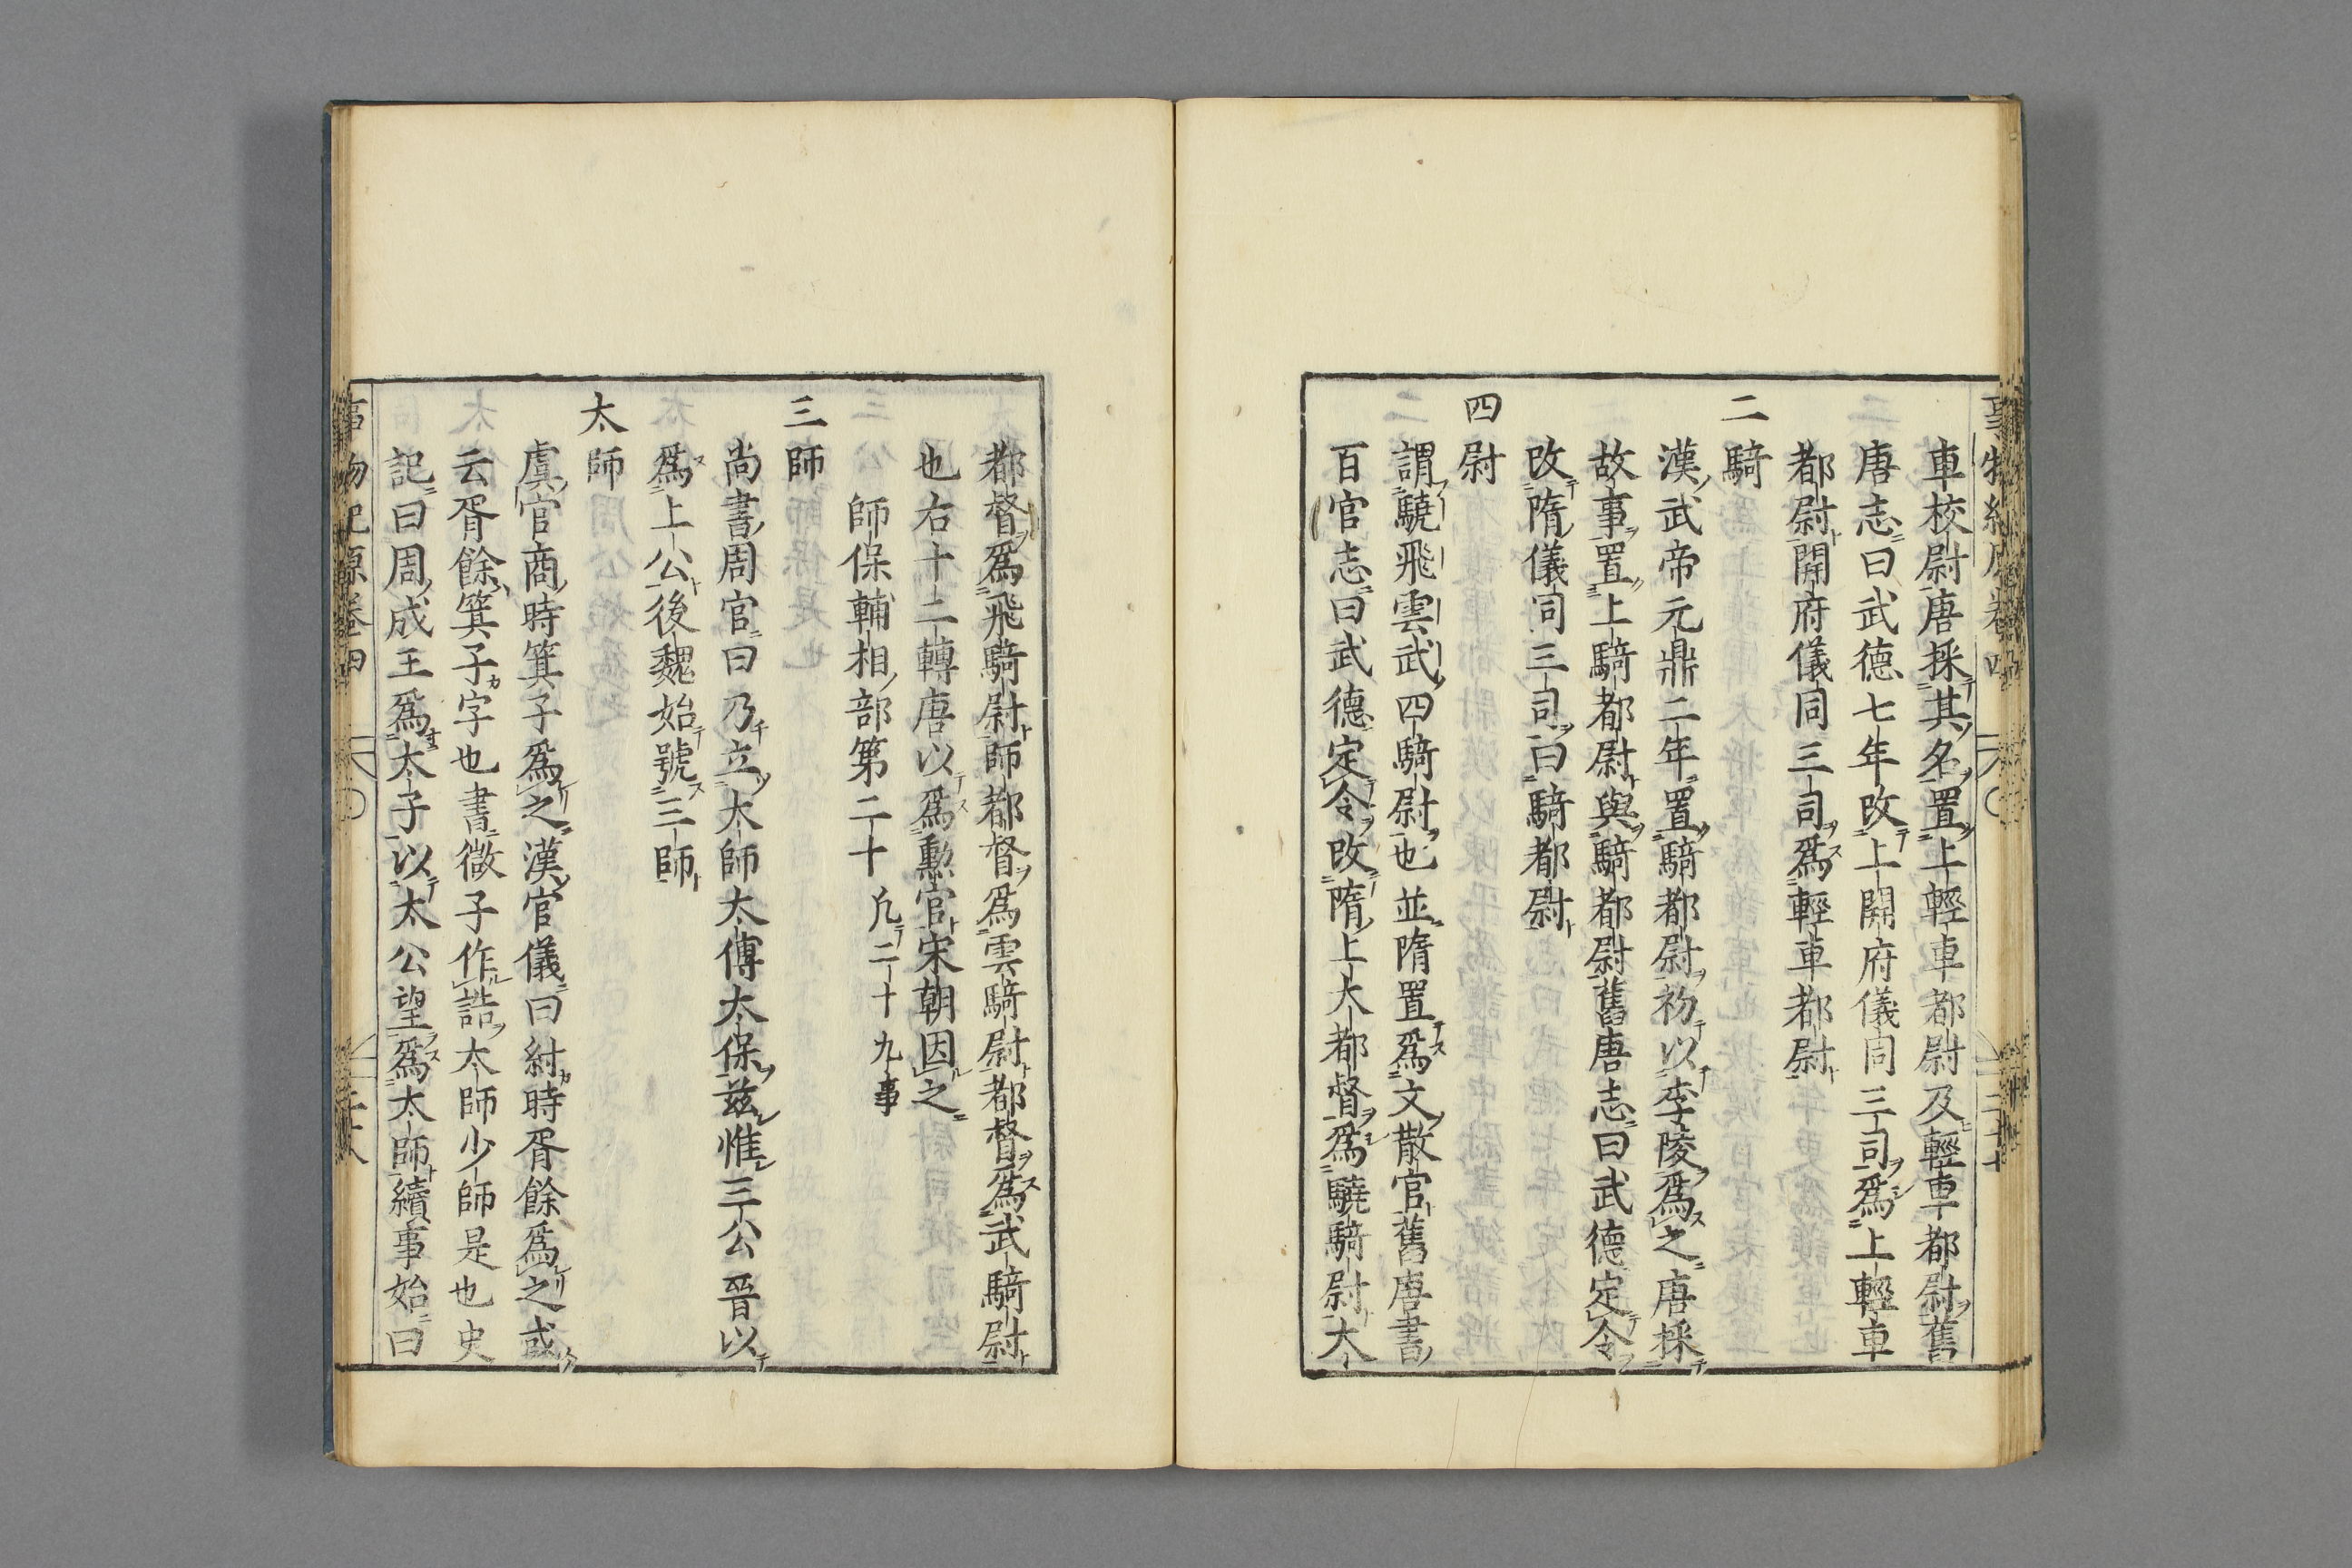 車校尉唐採其名置上輕車都尉及輕車都尉舊
唐志曰武德七年改上開府儀同三司爲上輕車
都尉開府儀同三司爲輕車都尉
二騎
漢武帝元鼎二年置騎都尉初以李陵爲之唐採
故事置上騎都尉與騎都尉舊唐志曰武德定令
改隋儀同三司曰騎都尉
四尉
謂驍飛雲武四騎尉也並隋置爲文散官舊唐書
百官志曰武德定令改隋上大都督爲驍騎尉大
都督爲飛騎尉師都督爲雲騎尉都督爲武騎尉
也右十二轉唐以爲勲官宋朝因之
師保輔相部第二十 凡二十九事
三師
尚書周官曰乃立太師太傅太保茲惟三公晉以
爲上公後魏始號三師
太師
虞官商時箕子爲之漢官儀曰紂時胥餘爲之或
云胥餘箕子字也書微子作誥太師少師是也史
記曰周成王爲太子以太公望爲太師續事始曰
事物紀原卷四